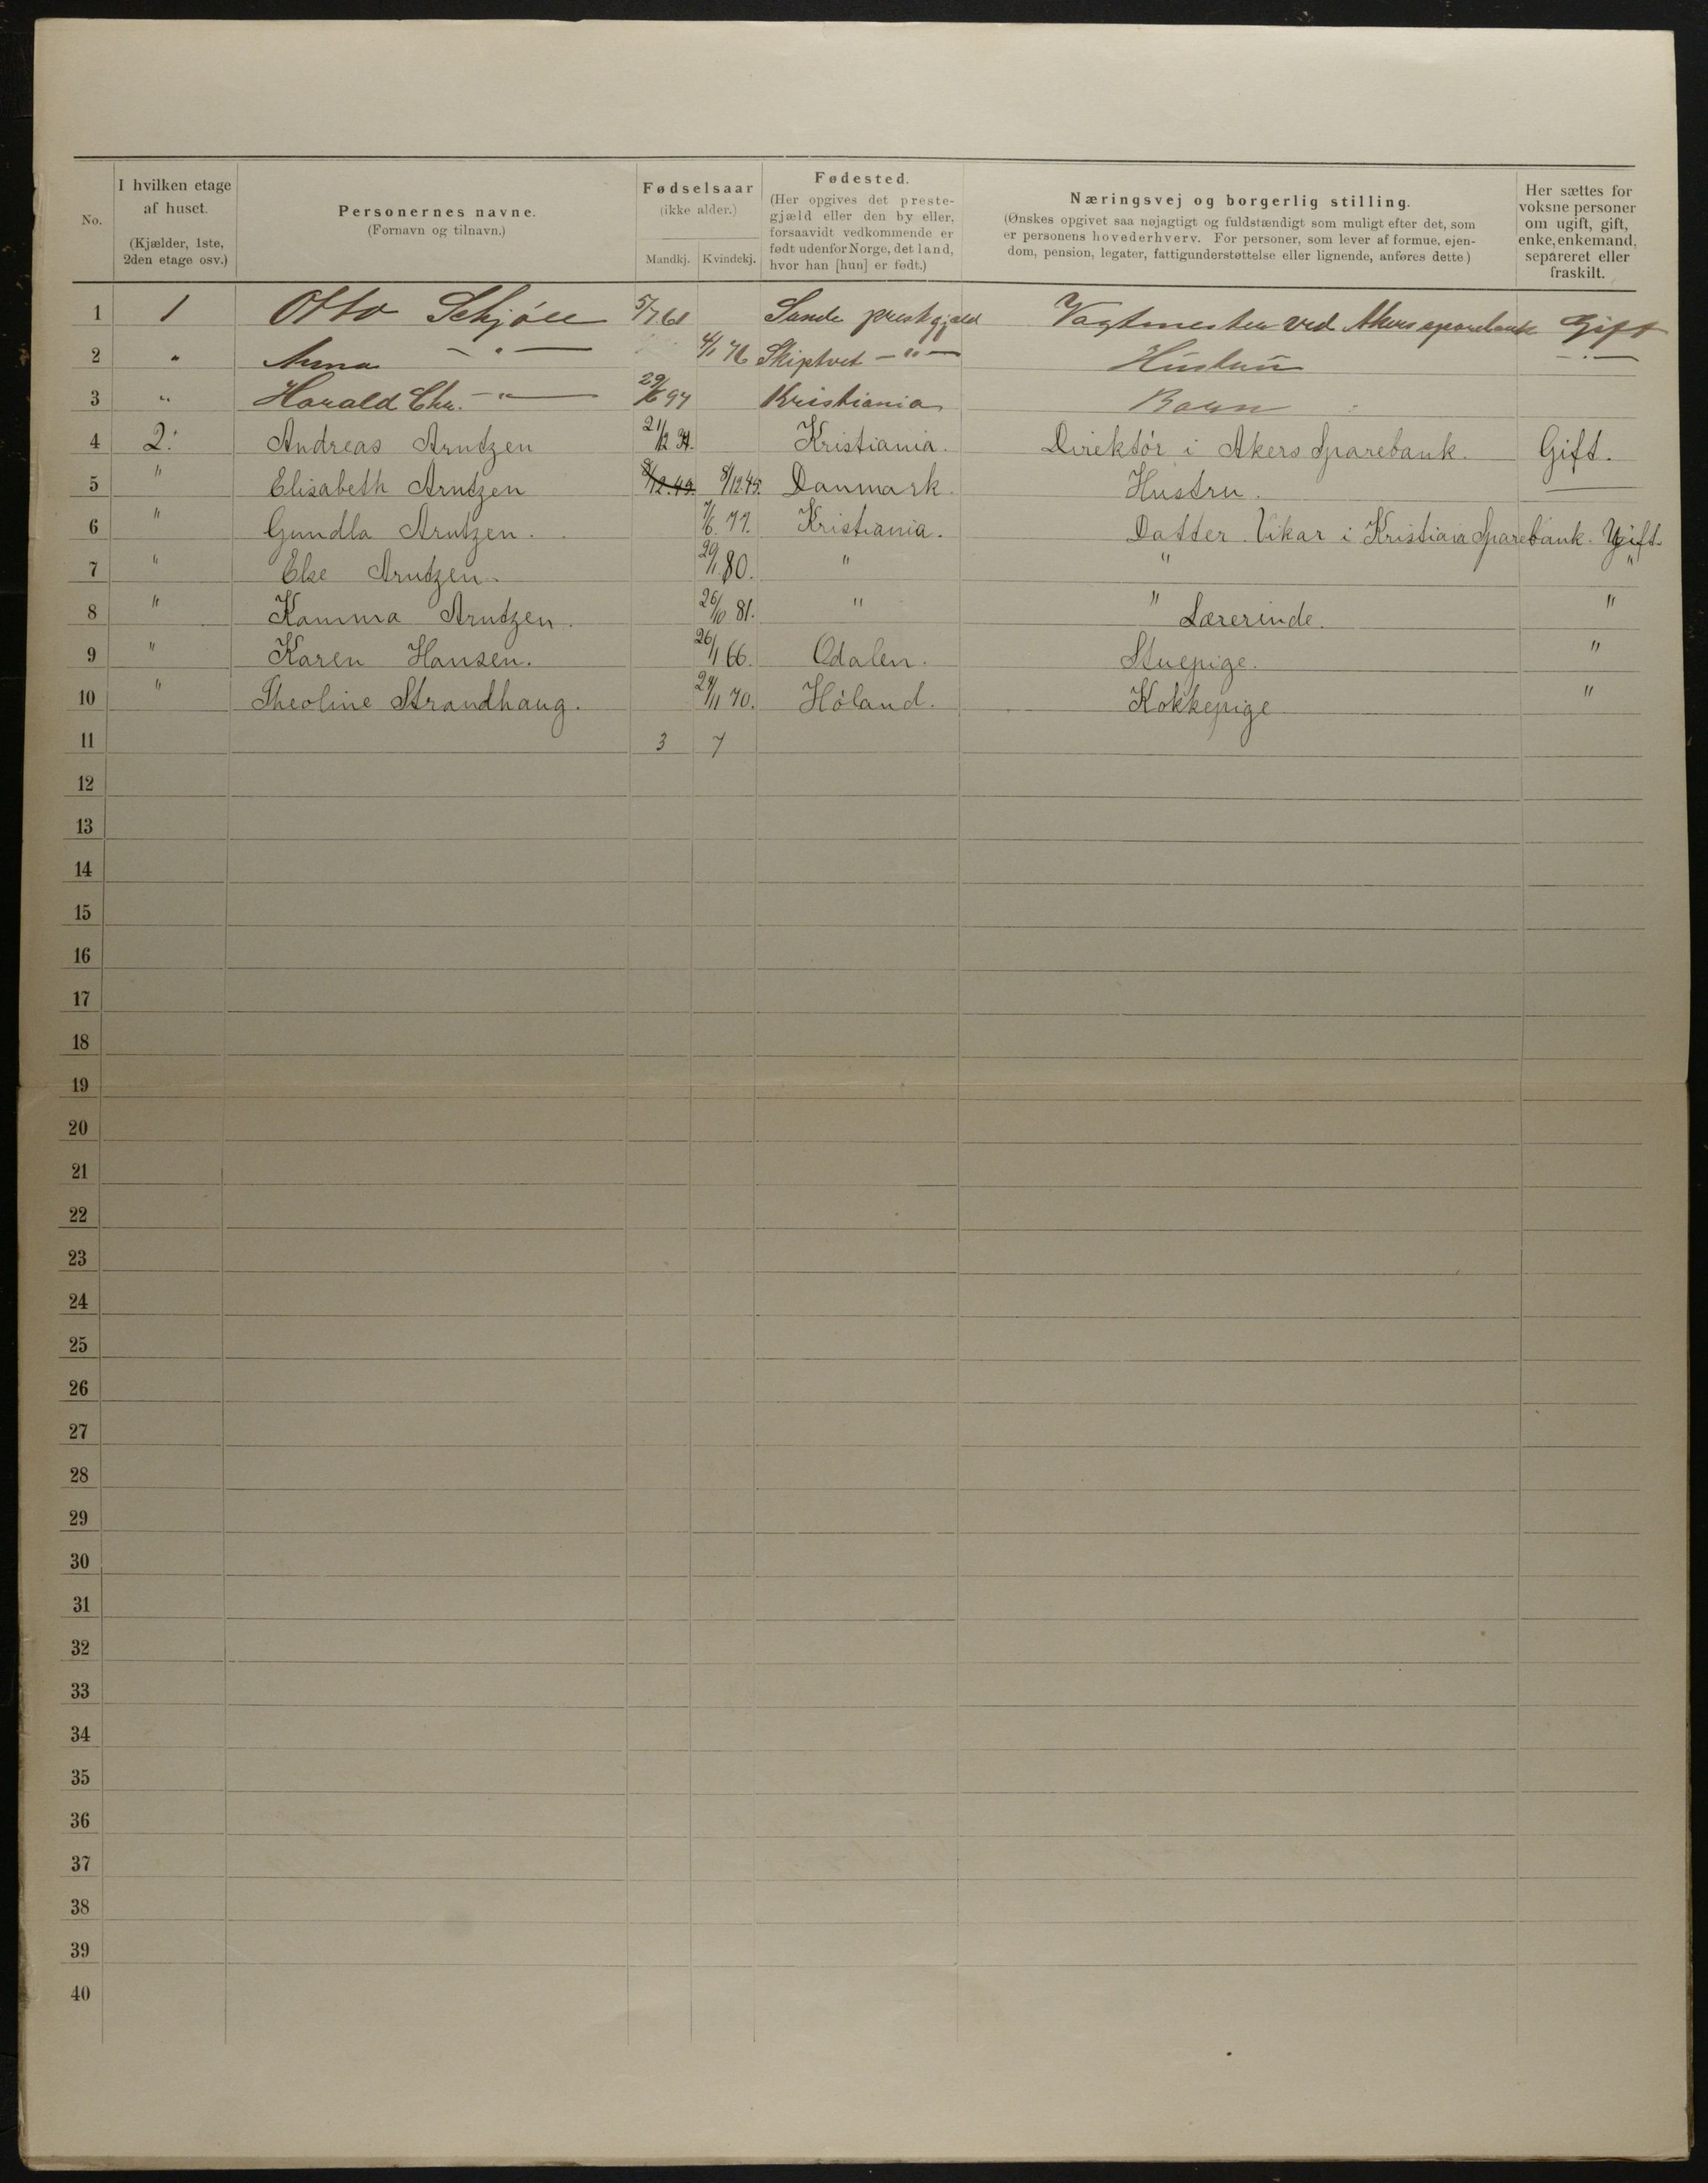 No. | I hvilken etage af huset. (Kjælder, 1ste, 2den etage osv.) | Personernes navne. (Fornavn og tilnavn.) | Fødselsaar (ikke alder.) Mandkj. Kvindekj. | Fødested. (Her opgives det prestegjæld eller den by eller, forsaavidt vedkommende er født udenfor Norge, det land, hvor han [hun] er født.) | Næringsvej og borgerlig stilling. (Ønskes opgivet saa nøjagtigt og fuldstændigt som muligt efter det, som er personens hovederhverv. For personer, som lever af formue, ejendom, pension, legater, fattigunderstøttelse eller lignende, anføres dette.) | Her sættes for voksne personer om ugift, gift, enke, enkemand, separeret eller fraskilt.
1 1 Otto Schjöll 5/7 61 Sande prestgjæld Vagtmester ved Akers sparebank Gift
2 " Anna —"— 4/1 76 Skiptvet —"— Hustru —"—
3 " Harald Chr. —"— 29/6 97 Kristiania Barn
4 2. Andreas Arntzen 21/12 34. Kristiania. Direktör i Akers Sparebank. Gift.
5 " Elisabeth Arntzen 8/12.45. 8/12.45. Danmark. Hustru. —
6 " Gundla Arntzen. 7/6. 77. Kristiania. Datter. Vikar i Kristiania Sparebank. Ugift.
7 " Else Arntzen. 29/1 80. " " "
8 " Kamma Arntzen. 26/10 81. " " Lærerinde. "
9 " Karen Hansen. 26/1 66. Odalen. Stuepige. "
10 " Theoline Strandhaug. 24/11 70. Höland. Kokkepige "
11 3 7
12
13
14
15
16
17
18
19
20
21
22
23
24
25
26
27
28
29
30
31
32
33
34
35
36
37
38
39
40